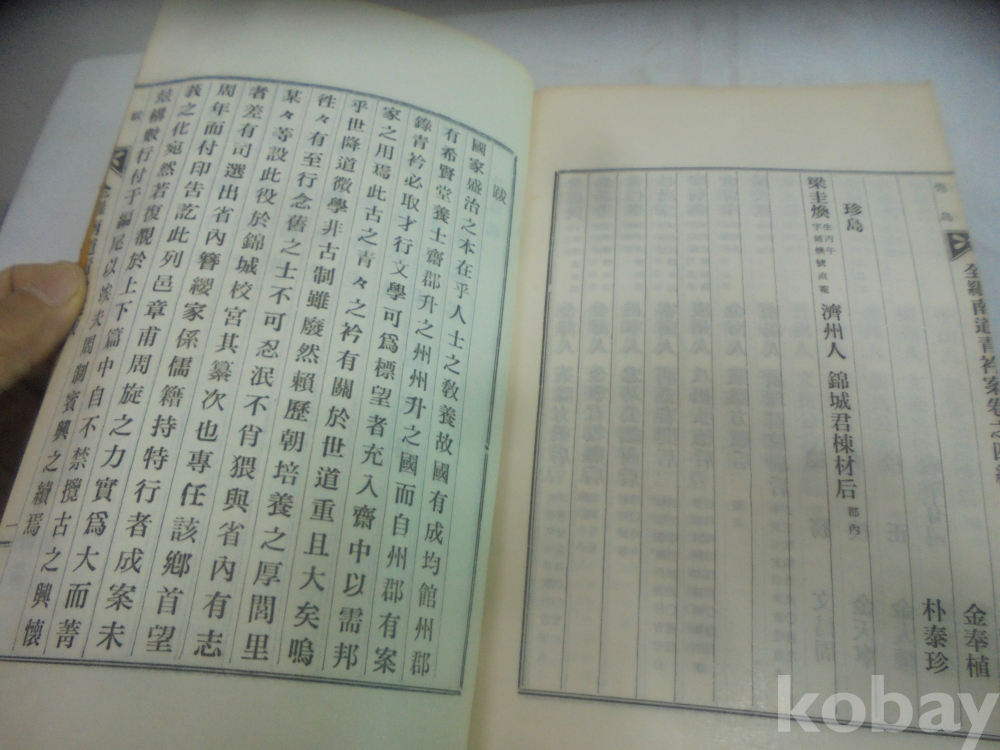 全羅南道靑衿案卷上之四
金奉植
朴泰珍
珍島
梁圭煥 生丙午 字 號貞菴 濟州人 錦城君棟材后 郡內
跋
國家盛治之本在乎人士之敎養故國有成均館州郡
有希賢堂養士齋郡升之州州升之國而自州郡有案
錄靑衿必取才行文學可爲標望者充入齋中以需邦
家之用焉此古之靑々之衿有關於世道重且大矣嗚
乎世降道微學非古制雖廢然賴歷朝培養之厚閭里
徃々有至行念舊之士不可忍泯不肖猥與省內有志
某々等設此役於錦城校宮其纂次也專任該鄕首望
者差有司選出省內簪纓家係儒籍持特行者成案未
周年而付印告訖此列邑章甫周旋之力實爲大而菁
義之化宛然若復覩於上下篇中自不禁攬古之興懷
玆構數行付于編尾以竢夫閒制賓興之續焉
跋
一
kobay